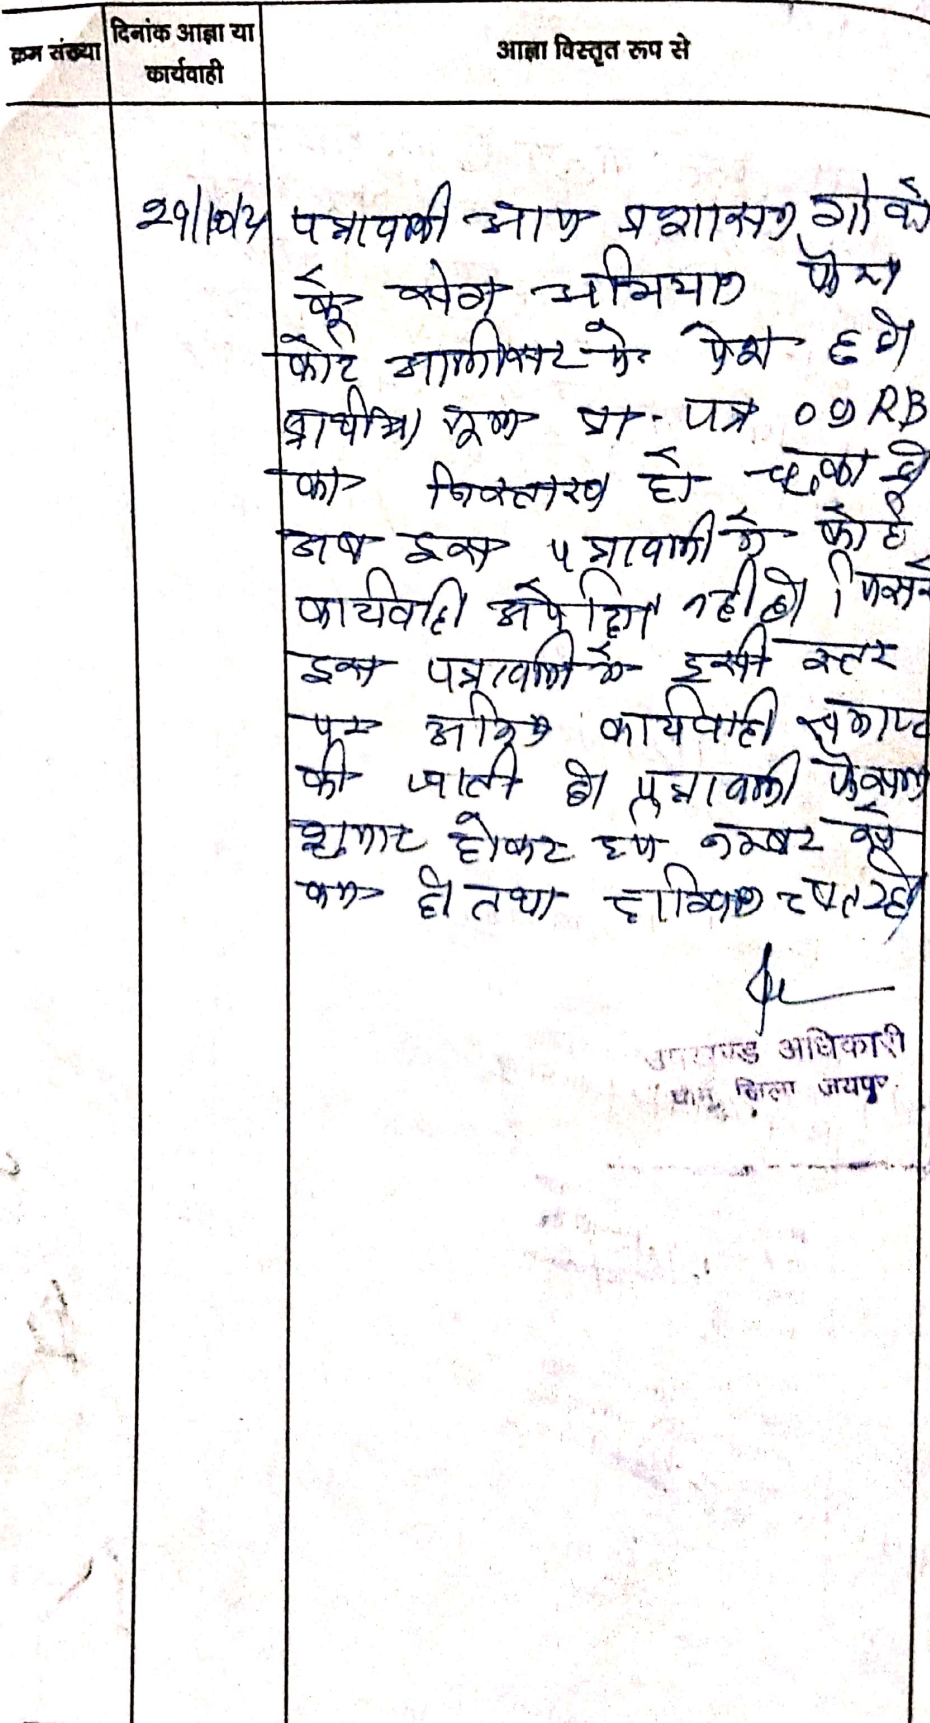 क्रम संख्या
दिनांक आज्ञा या
कार्यवाही
आज्ञा विस्तृत रूप से
पत्रावली आज प्रशासन गांवो
के संग अभियान कैम्प
कोर्ट में पेश हुई
प्रा. पत्र 09 RB
का निस्तारण हो चुका है
अब इस पत्रावली में कोई
कार्यवाही अपेक्षित नहीं है।
इस पत्रावली में इसी स्तर
पर अग्रिम कार्यवाही समाप्त
की जाती है। पत्रावली फैसल
शुमार होकर दर्ज नम्बर से
कम हो तथा दाखिल दफ्तर हो
उपखण्ड अधिकारी
जिला जयपुर